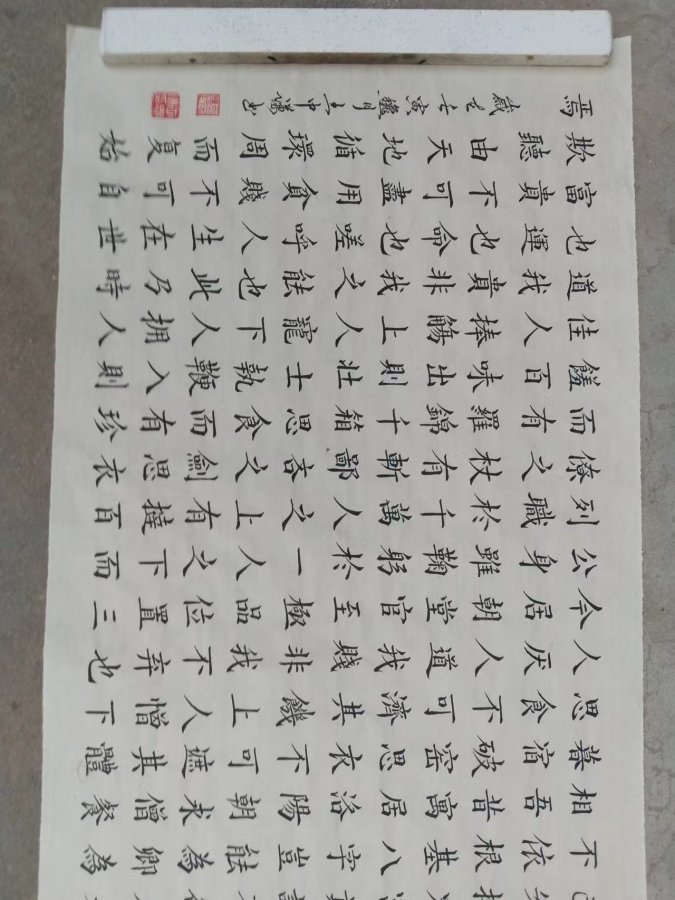 不依根基八字豈能為卿為
相吾昔寓居洛陽朝求僧餐
慕宿破窑思衣不可遮其體
思食不可濟其饑上人憎下
人厌人道我賤非我不弃也
今居朝堂官至極品位置三
公身雖鞠躬於一人之下而
列職於千萬人之上有撻百
僚之杖有斬鄙吝之劍思衣
而有羅錦千箱思食而有珍
饈百味出則壯士執鞭入則
佳人捧觴上人寵下人拥人
道我貴非我之能也此乃時
也運也命也嗟呼人生在世
富貴不可盡用貧賤不可自
欺聽由天地循環周而复始
焉 歲 寅 月王中 书